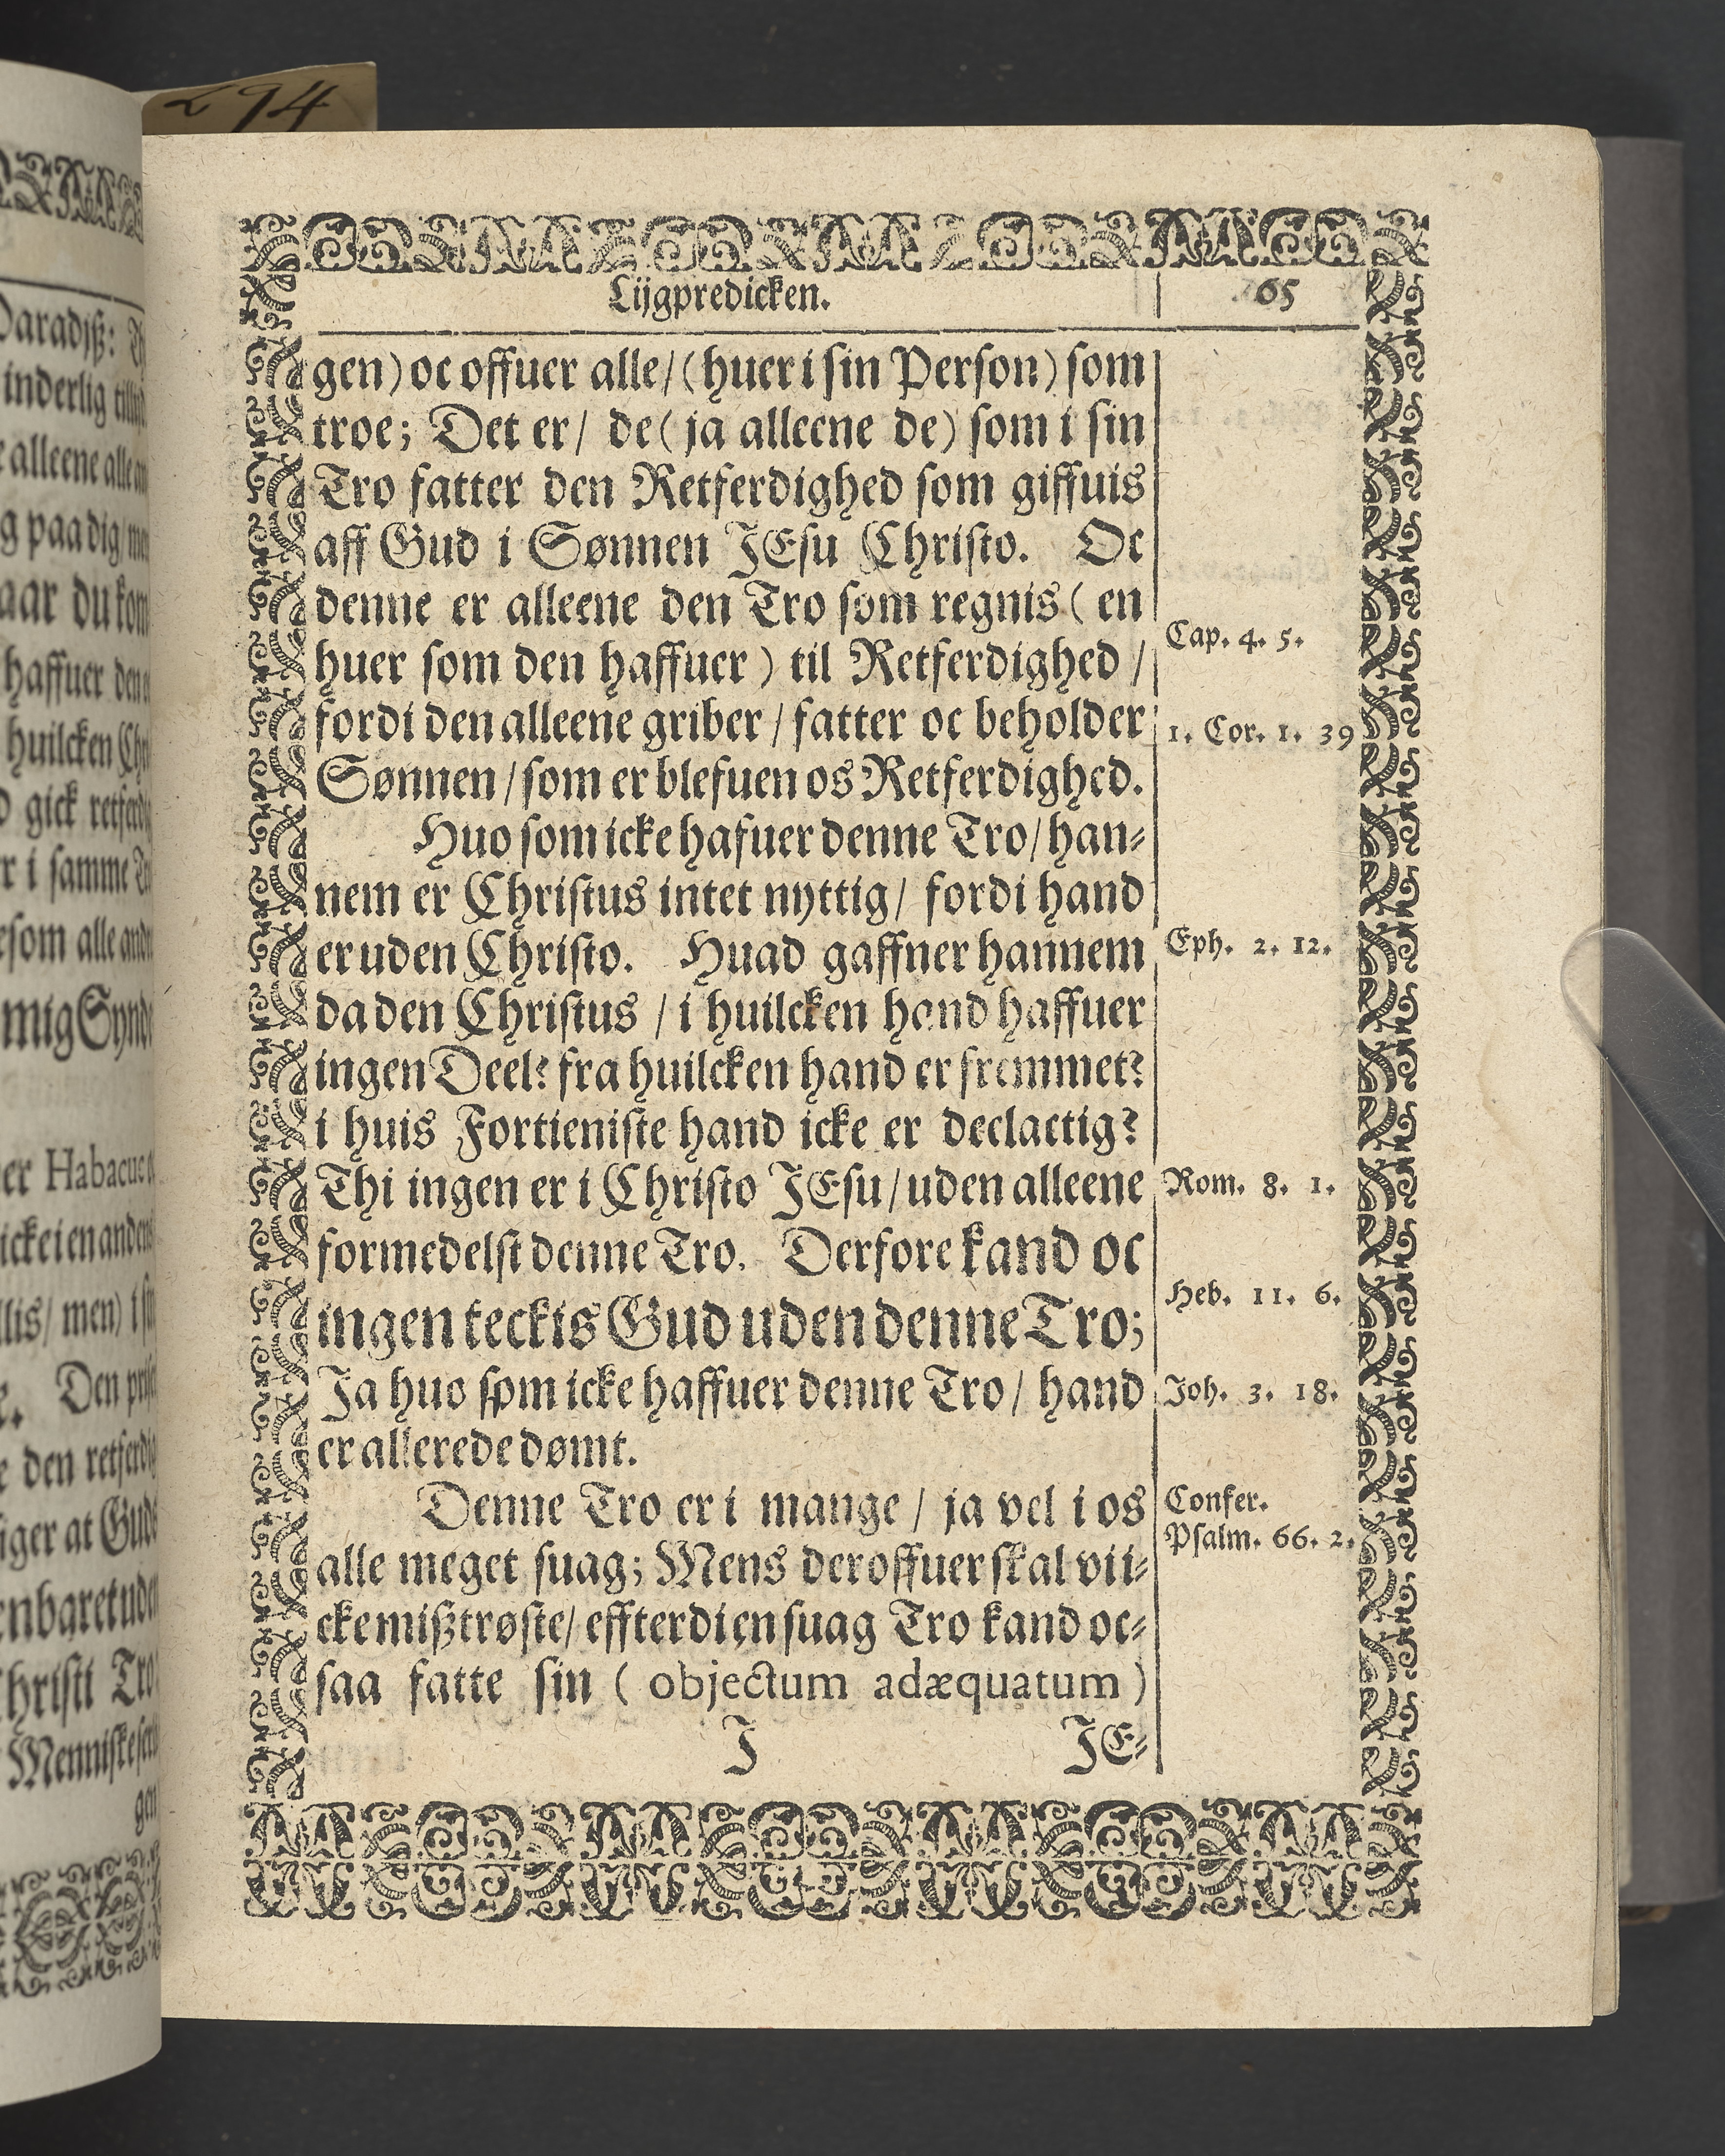 294
Lijgpredicken.
65
gen) oc offuer alle/ (huer i sin Person) som
troe; Det er/ de (ja alleene de) som i sin
Tro fatter den Retferdighed som giffuis
aff Gud i Sønnen JEsu Christo. Oc
denne er alleene den Tro som regnis (en
huer som den haffuer) til Retferdighed /
fordi den alleene griber / fatter oc beholder
Sønnen / som er blefuen os Retferdighed.
Huo som icke hafuer denne Tro / han-
nem er Christus intet nyttig / fordi hand
er uden Christo. Huad gaffner hannem
da den Christus / i huilcken hand haffuer
ingen Deel? fra huilcken hand er fremmet?
i huis Fortieniste hand icke er deelactig?
Thi ingen er i Christo JEsu / uden alleene
formedelst denne Tro. Derfore kand oc
ingen teckis Gud uden denne Tro;
Ja huo som icke haffuer denne Tro / hand
er allerede dømt.
Denne Tro er i mange / ja vel i os
alle meget suag; Mens deroffuer skal vi i-
cke mißtrøste / effterdi en suag Tro kand oc-
saa fatte sin ( objectum adæquatum )
J JE-
Cap. 4. 5.
1. Cor. 1. 39
Eph. 2. 12.
Rom. 8. 1.
Heb. 11. 6.
Joh. 3. 18.
Confer.
Psalm. 66. 2.